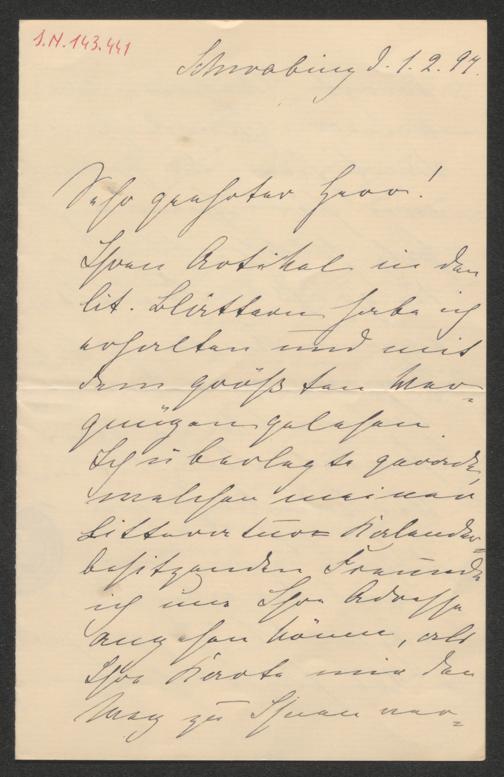 I.N. 143.441
Schwabing d. 1. 2. 97.
Sehr geehrter Herr!
Ihren Artikel in den
lit. Blättern habe ich
erhalten und mit
dem größten Ver-
gnügen gelesen.
Ich überlegte gerade,
welchen meiner
Litteratur-Kalender
besitzenden Freunde
ich um Ihre Adresse
angehen könne, als
Ihre Karte mir den
Weg zu Ihnen